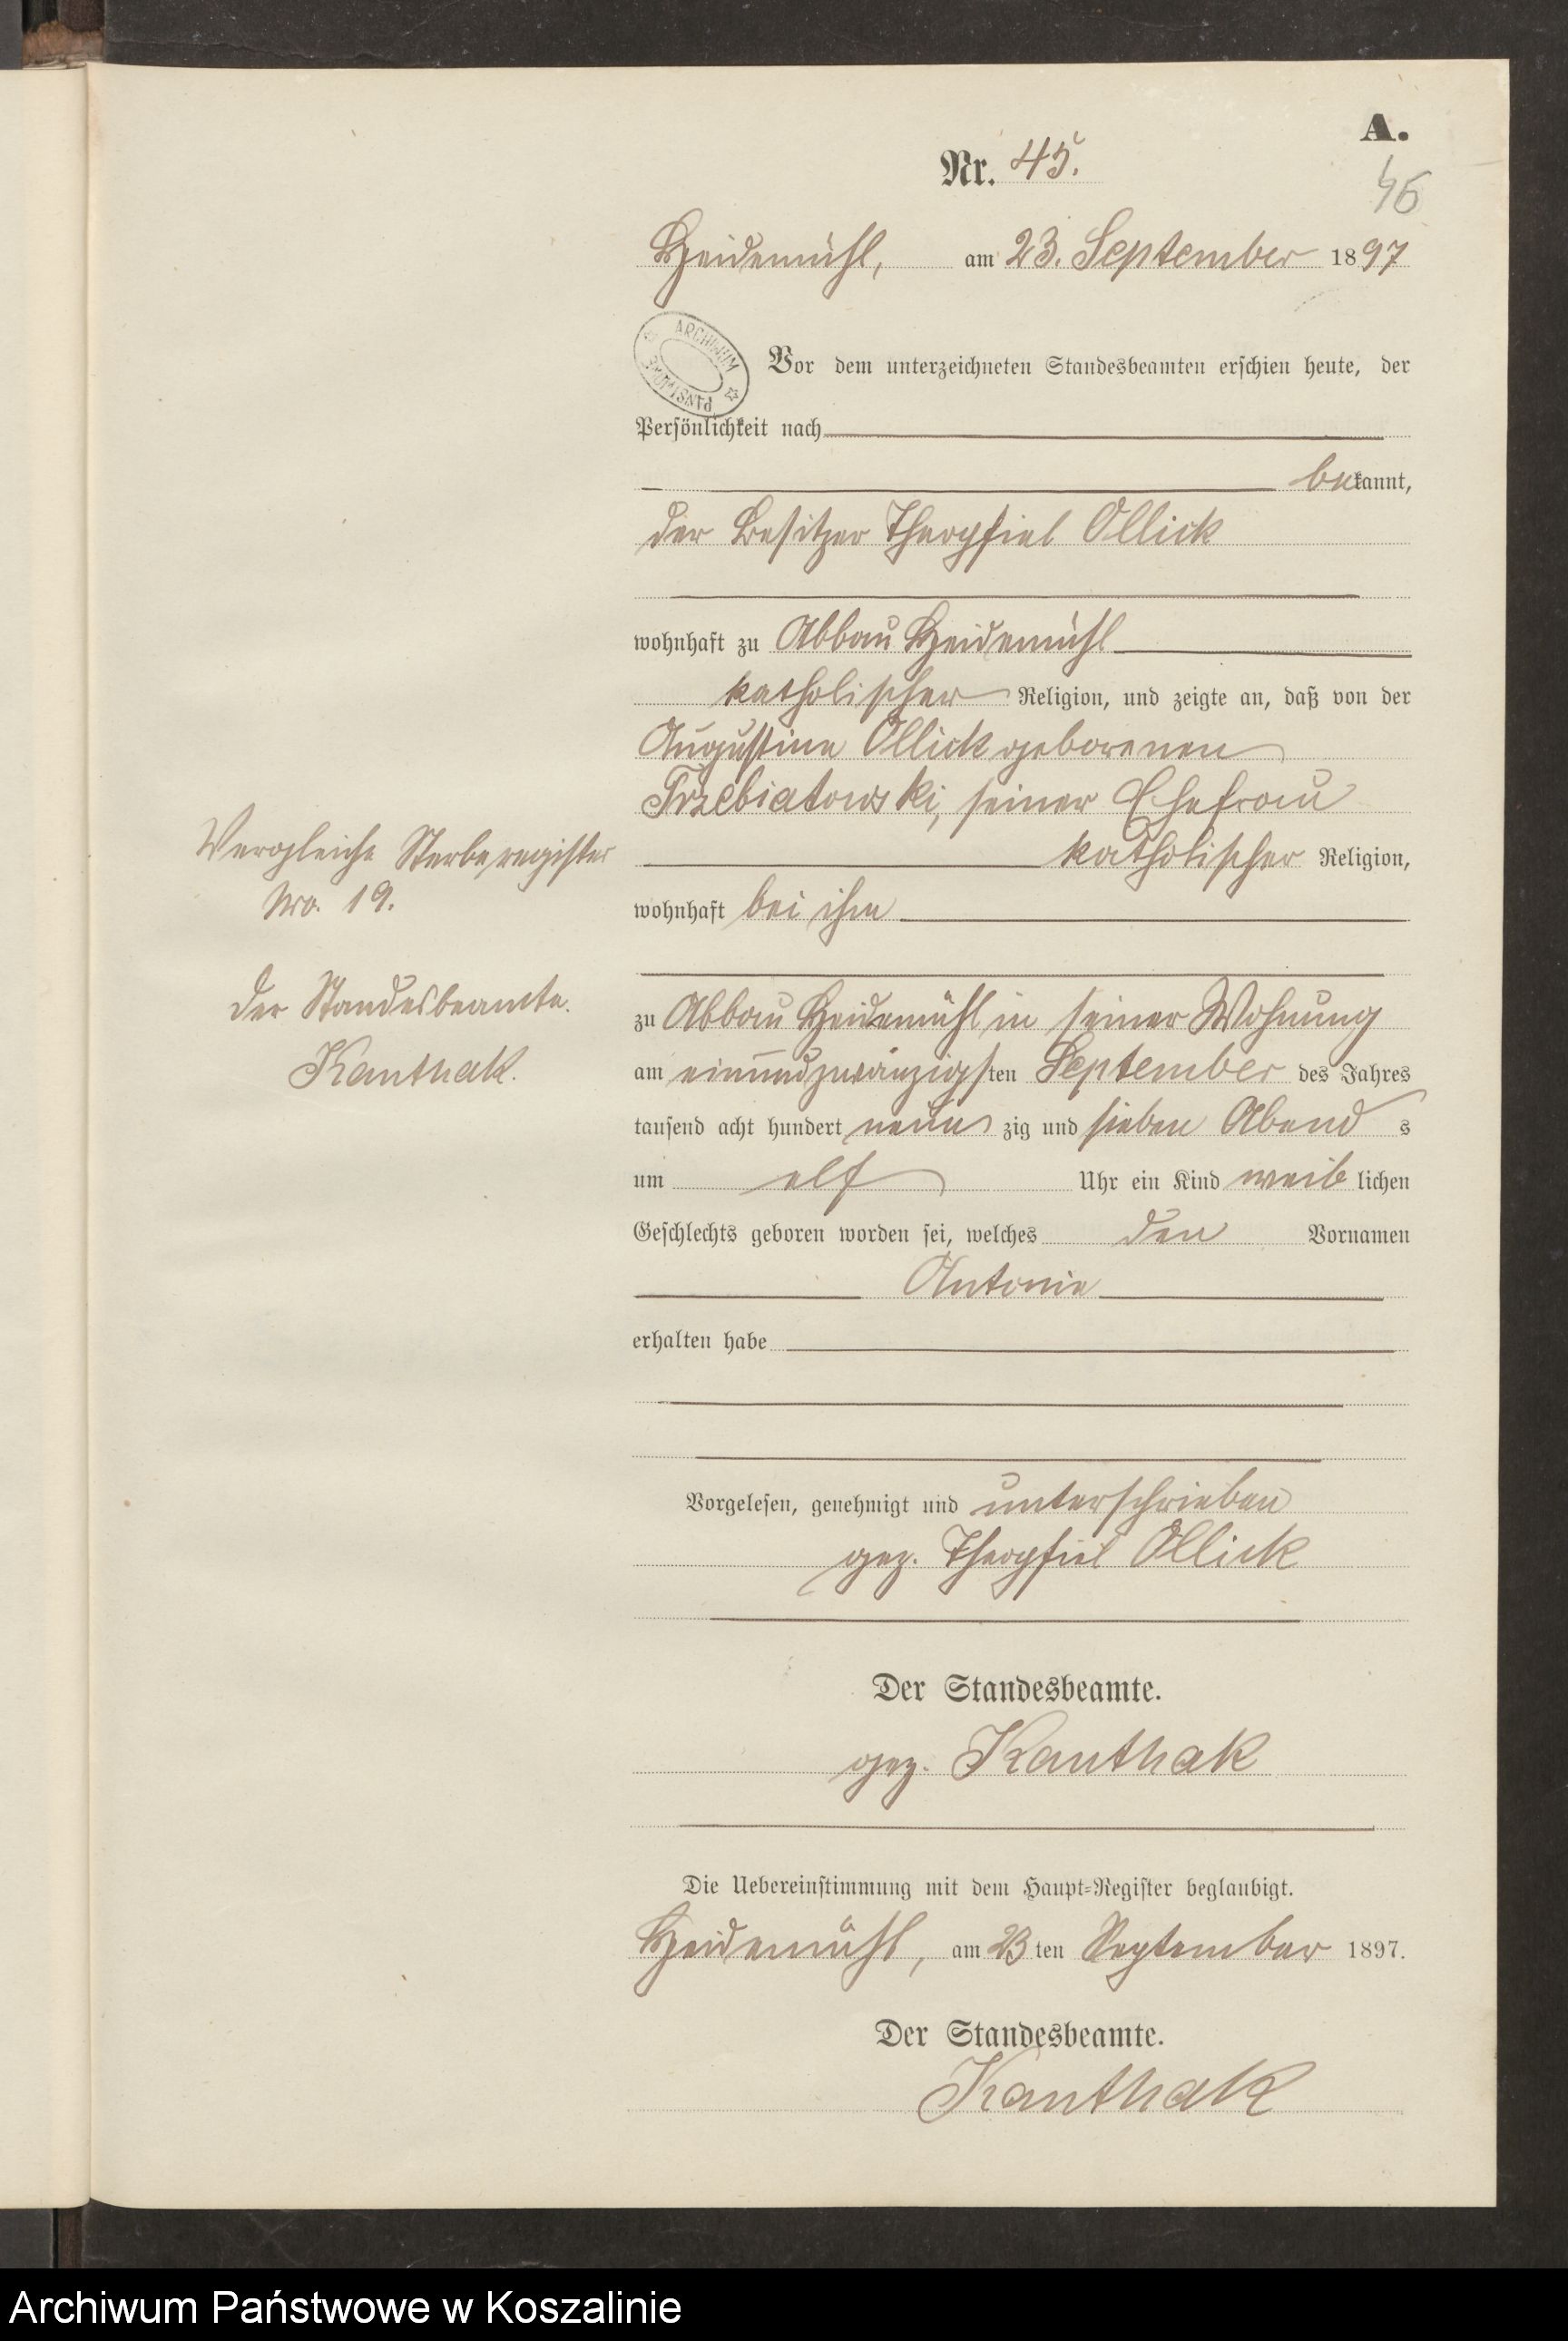 A.
Nr. 45.
46
Heidemühl, am 23. September 1897
ARCHIWUM PAŃSTWOWE
Vor dem unterzeichneten Standesbeamten erschien heute, der
Persönlichkeit nach
bekannt,
der Besitzer Theophiel Ollick
wohnhaft zu Abbau Heidemühl
katholischer Religion, und zeigte an, daß von der
Augustine Ollick geborenen
Trzebiatowski, seiner Ehefrau
katholischer Religion,
wohnhaft bei ihm
zu Abbau Heidemühl in seiner Wohnung
am einundzwanzigsten September des Jahres
tausend acht hundert neunzig und sieben Abends
um elf Uhr ein Kind weiblichen
Geschlechts geboren worden sei, welches den Vornamen
Antonie
erhalten habe
Vorgelesen, genehmigt und unterschrieben
gez. Theophiel Ollick
Der Standesbeamte.
gez. Kanthak
Die Uebereinstimmung mit dem Haupt-Register beglaubigt.
Heidemühl, am 23ten September 1897.
Der Standesbeamte.
Kanthak
Vergleiche Sterberegister
Nro. 19.
Der Standesbeamte.
Kanthak.
Archiwum Państwowe w Koszalinie